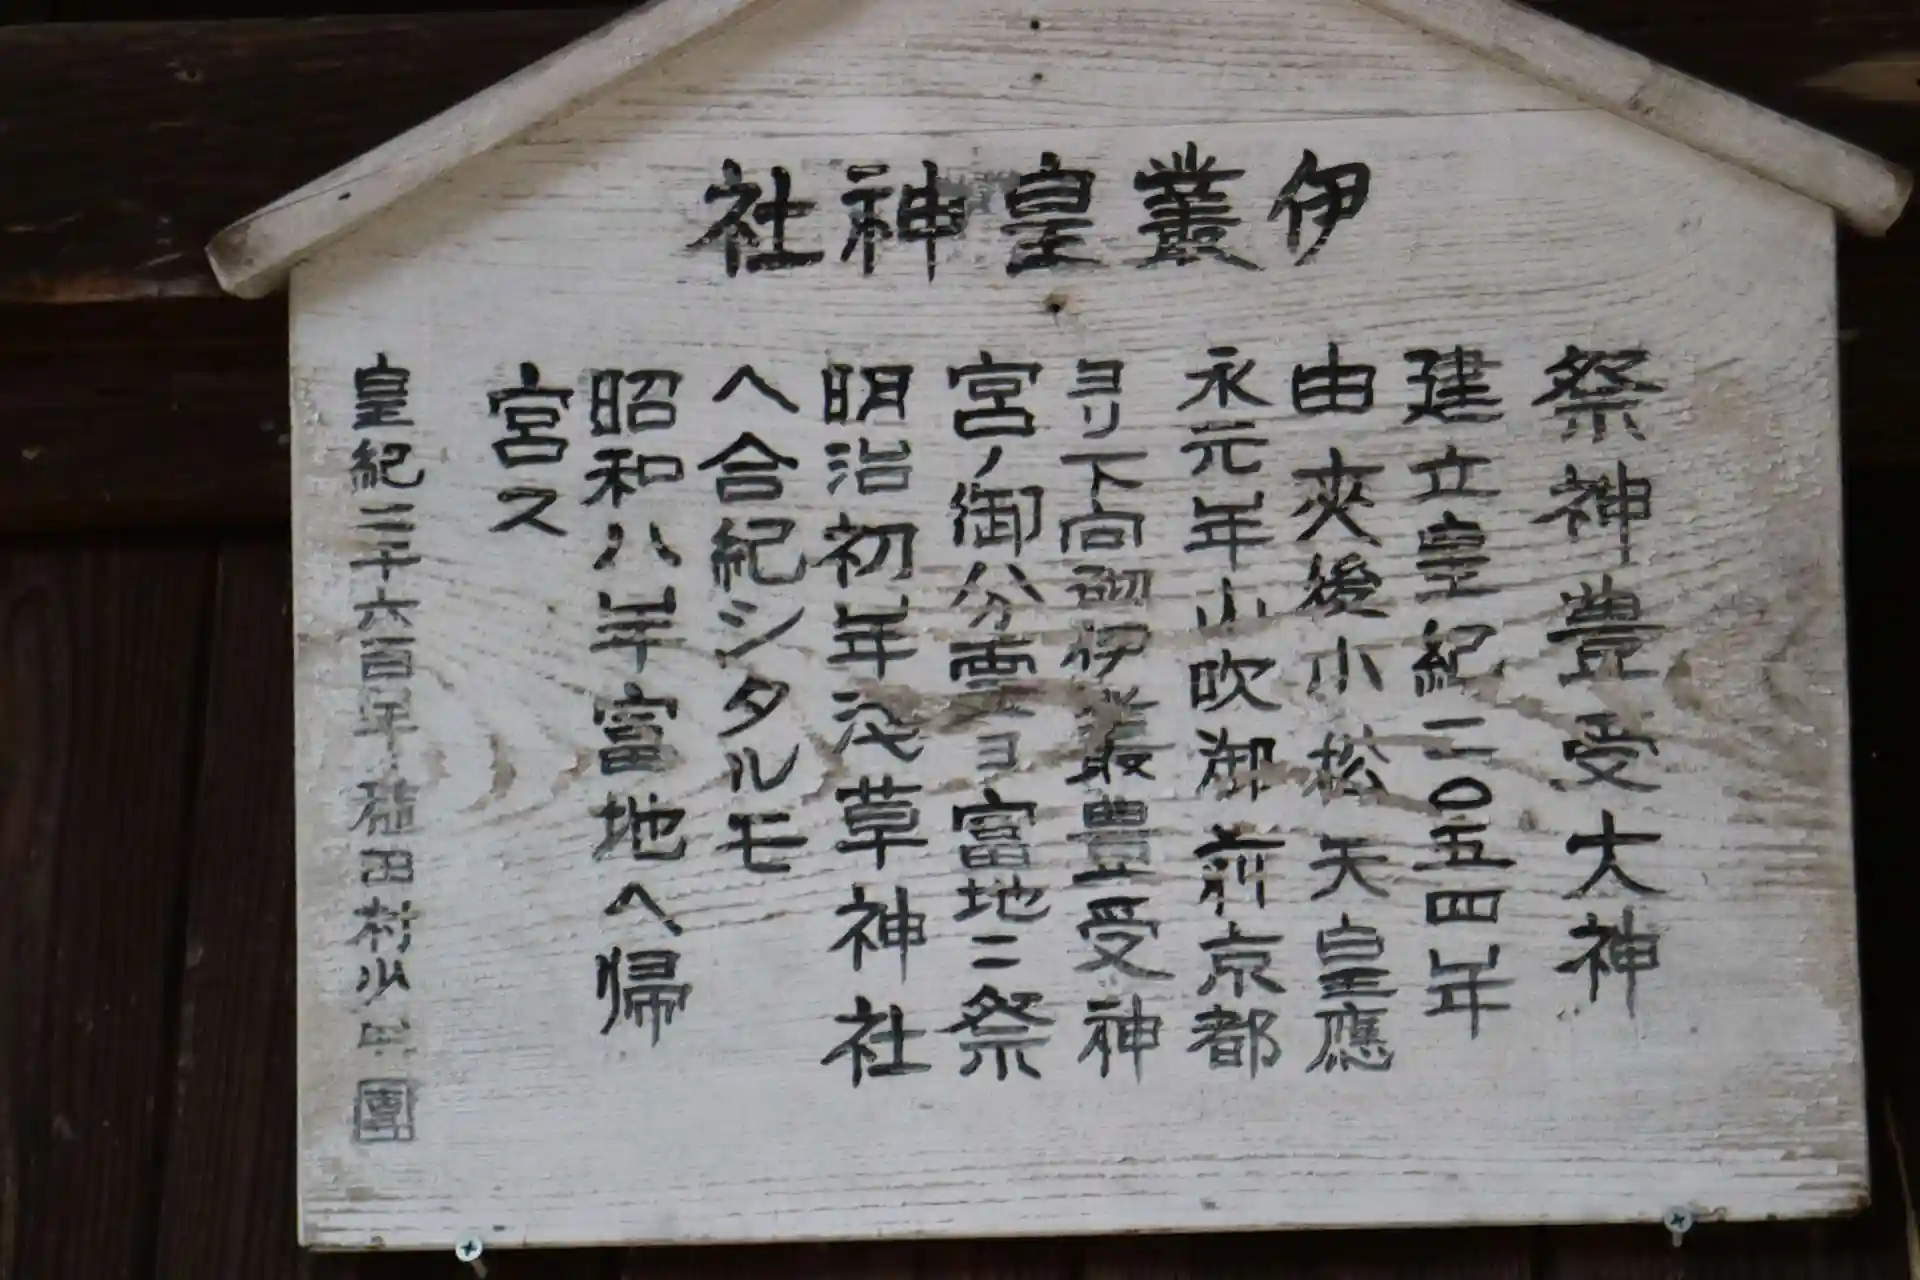 伊叢皇神社
祭神豊受大神
建立皇紀二〇五四年
由来後小松天皇應
永元年山吹御前京都
ヨリ下向 伊叢豊受神
宮ノ御分霊ヲ富地ニ祭
明治初年浅草神社
ヘ合紀シタルモ
昭和八年富地ヘ帰
宮ス
皇紀二千六百年 田村少 團